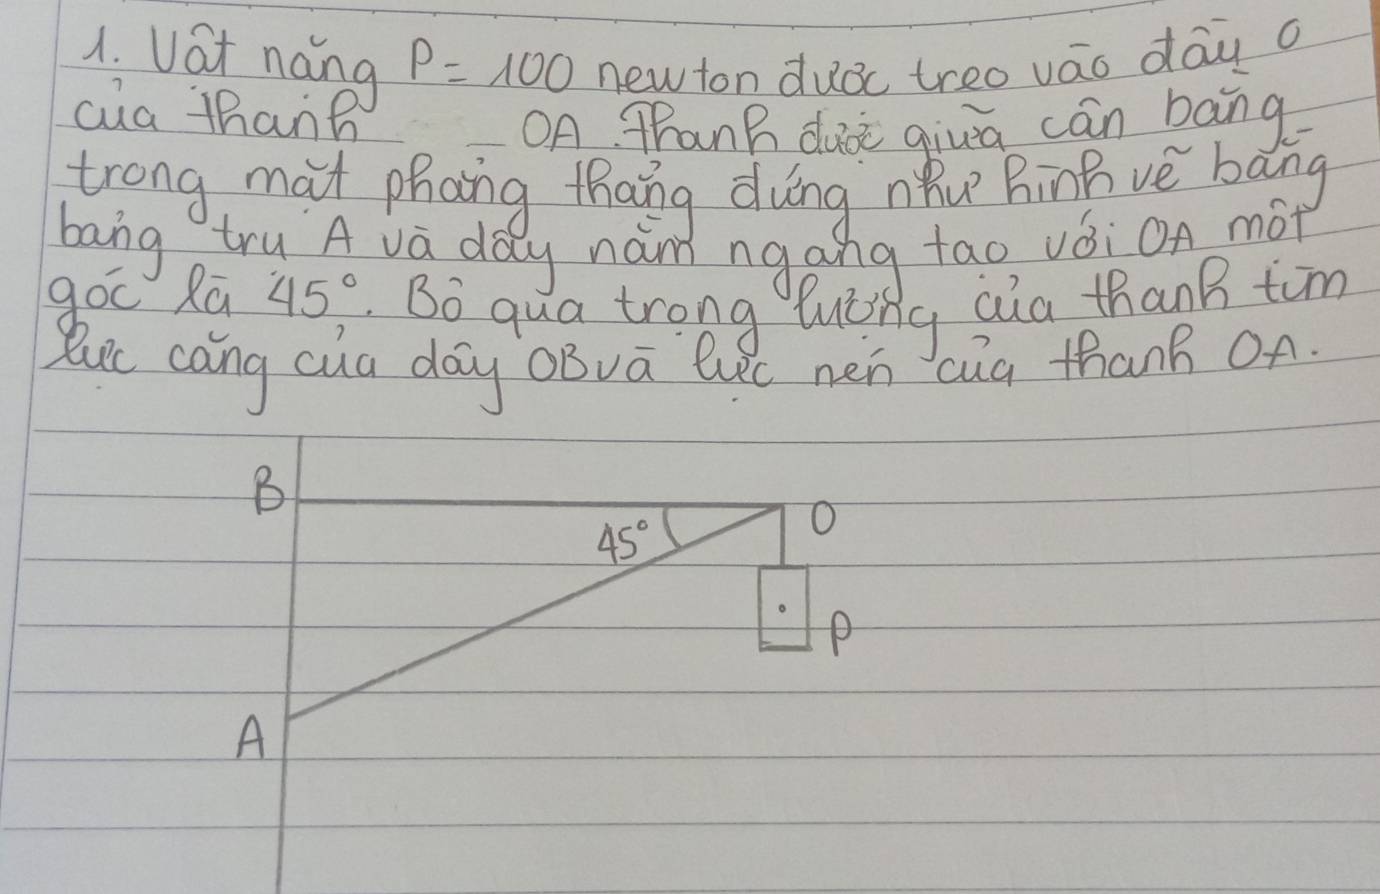 1. Vật nặng P = 100 newton được treo vào đầu O
của thanh OA. Thanh được giữa cân bằng
trong mặt phẳng thẳng đứng như hình vẽ bằng
bằng trụ A và dây nằm ngang tạo với OA một
góc là 45°. Bỏ qua trọng lượng của thanh tìm
lực căng của dây OB và lực nén của thanh OA.
B
45°
O
P
A